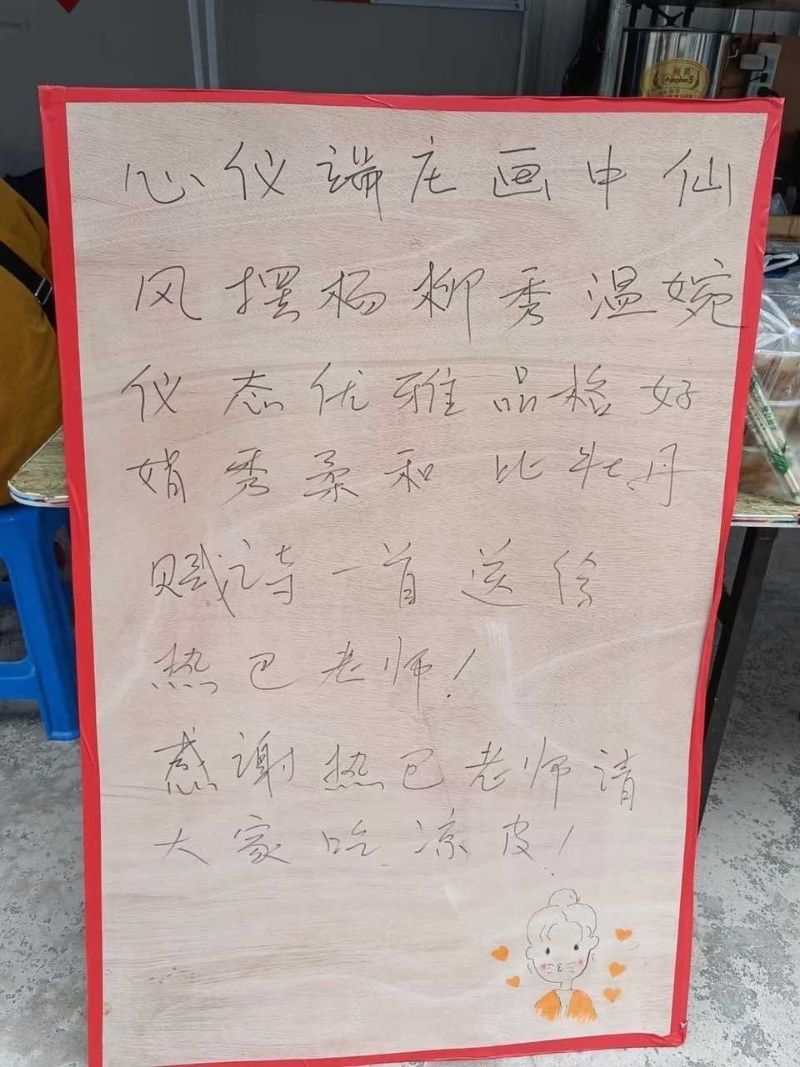 心仪端庄画中仙
风摆杨柳秀温婉
仪态优雅品格好
娟秀柔和比牡丹
赋诗一首送给
热巴老师！
感谢热巴老师请
大家吃凉皮！